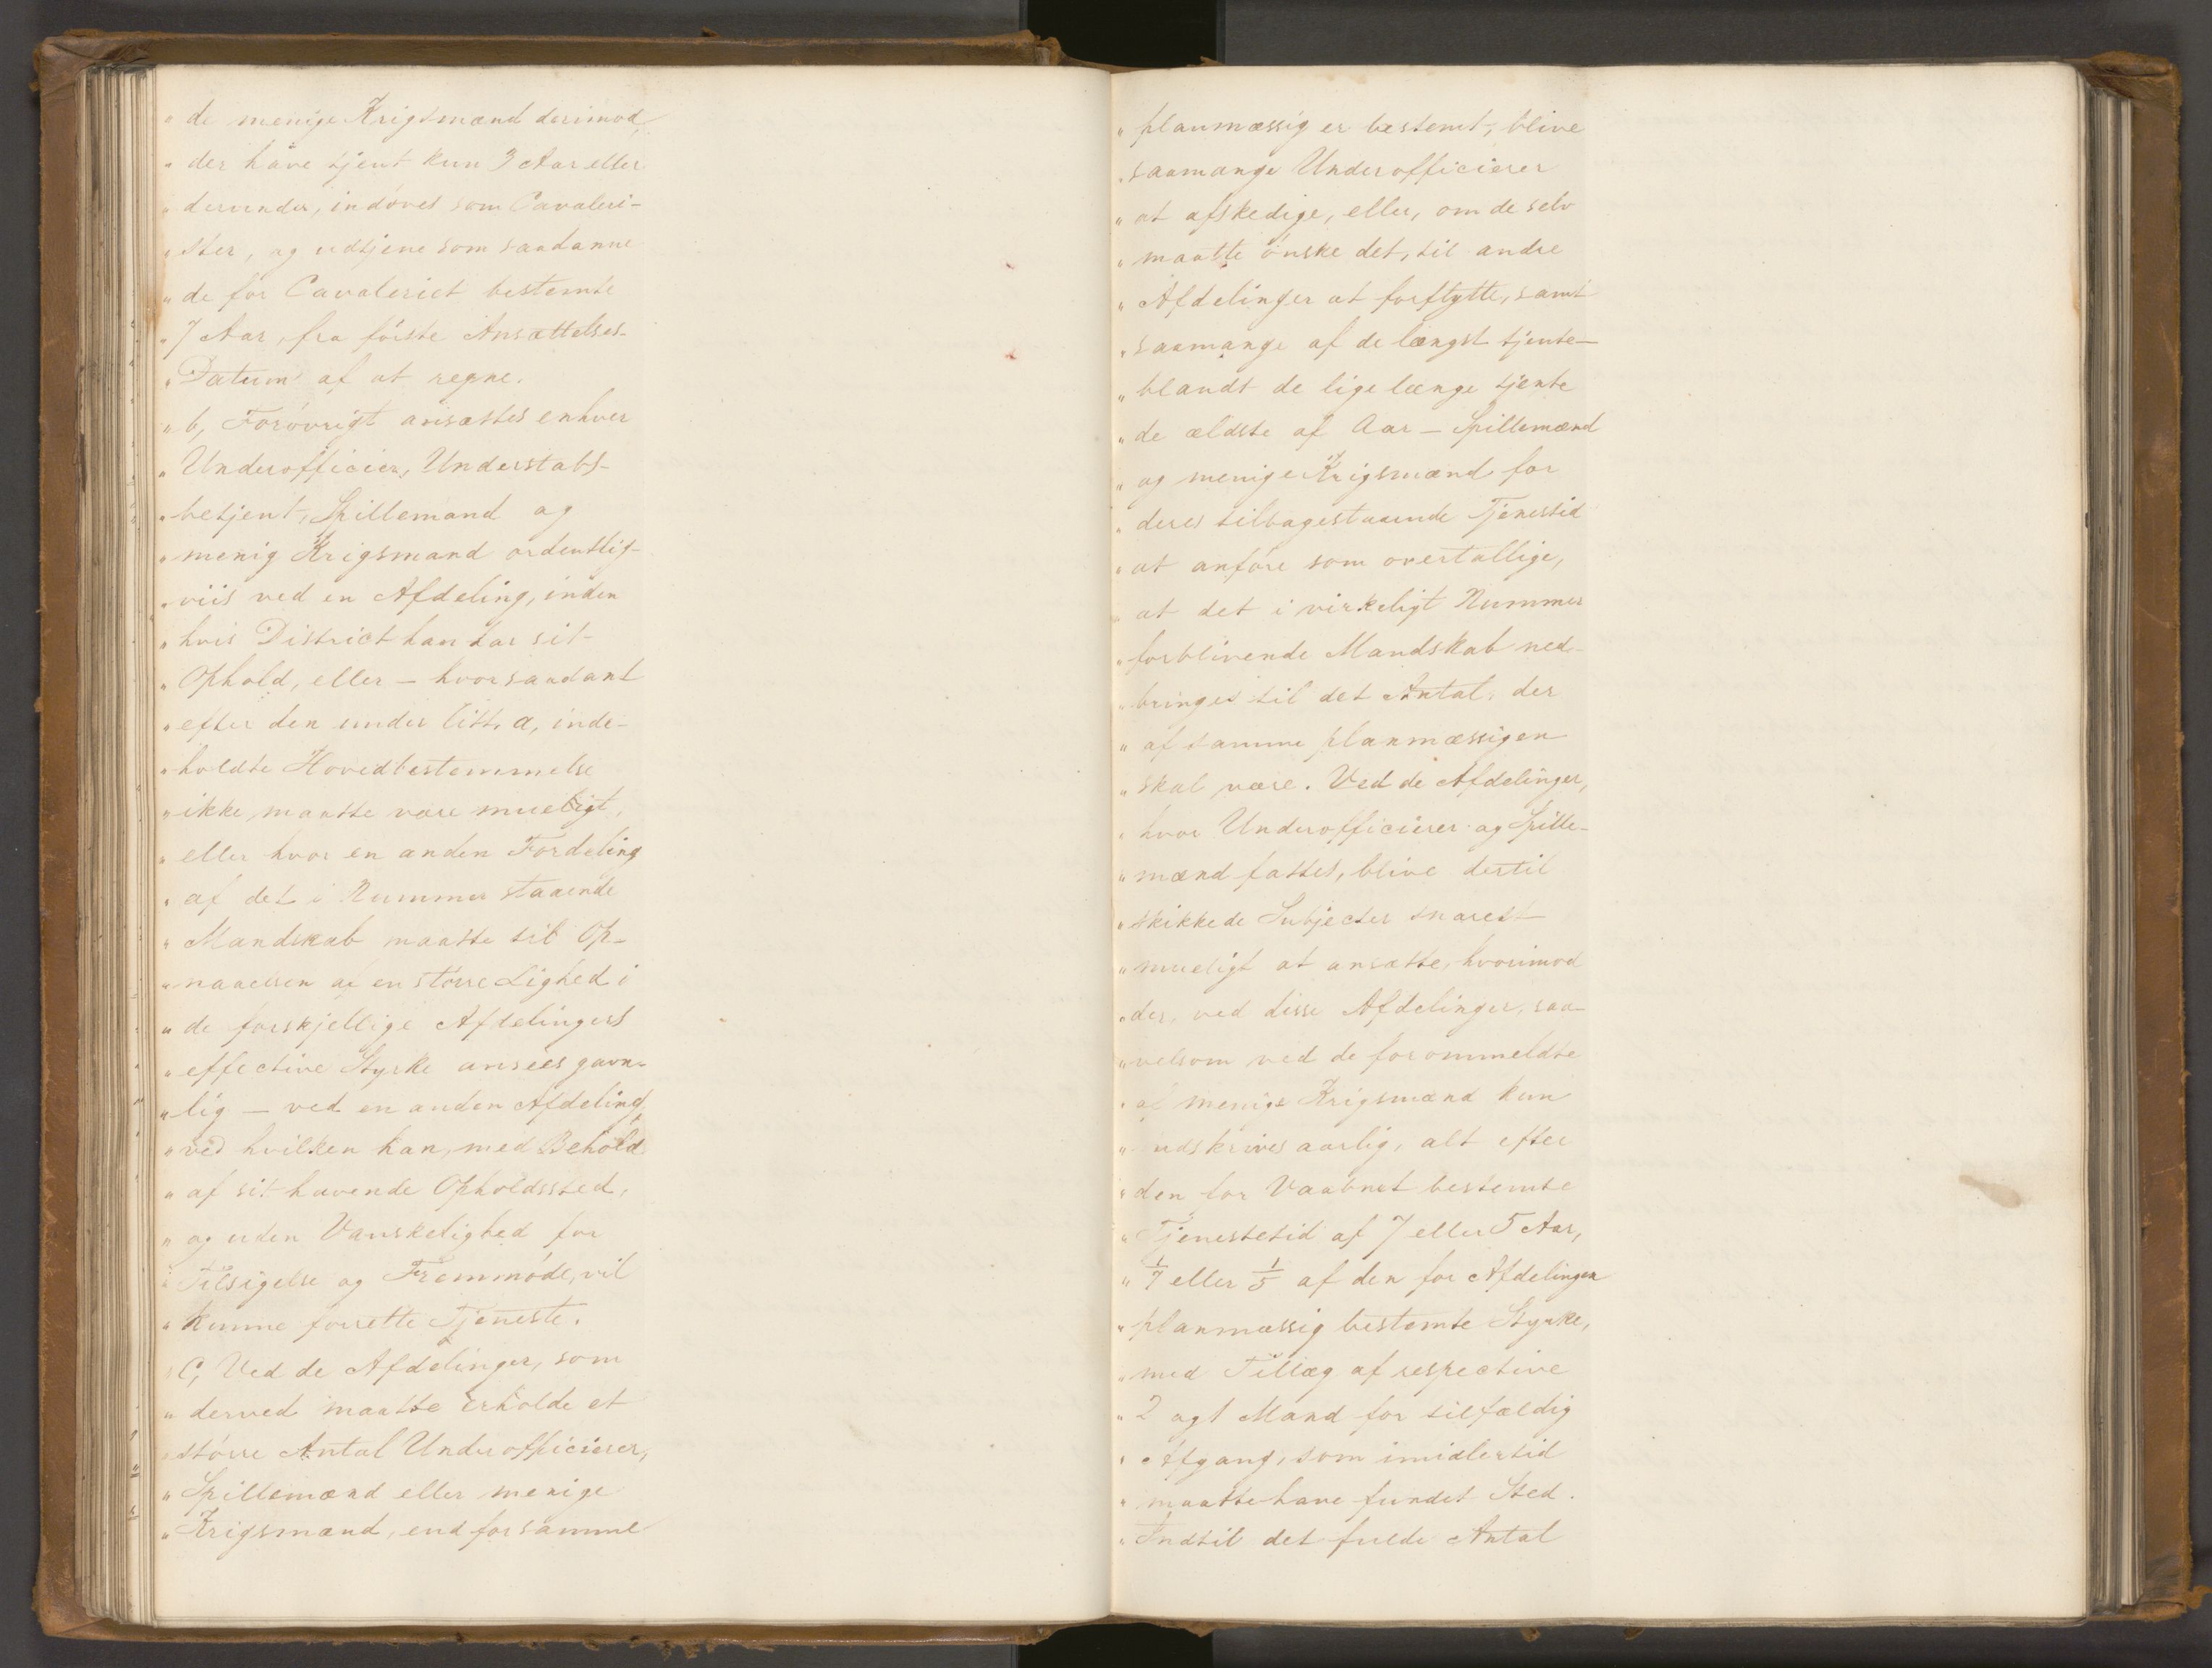 „ de menige Krigsmænd derimod,
„ der have tjent kun 3 Aar eller
„ derunder, indøves som Cavaleri-
„ ster, og udtjene som saadanne
„ de for Cavaleriet bestemte
„ 7 Aar, fra første Ansættelses-
„ Datum af at regne.
„ b, Forøvrigt ansættes enhver
„ Underofficier, Understabs-
„ betjent, Spillemand og
„ menig Krigsmand ordentlig-
„ viis ved en Afdeling, inden
„ hvis District han har sit
„ Ophold, eller – hvor saadant
„ efter den under litt. a, inde-
„ holdte Hovedbestemmelse
„ ikke maatte være mueligt,
„ eller hvor en anden Fordeling
„ af det i Nummer staaende
„ Mandskab maatte til Op-
„ naaelsen af en større Lighed i
„ de forskjellige Afdelingers
„ effective Styrke ansees gavn-
„ lig – ved en anden Afdeling,
„ ved hvilken han, med Behold
„ af sit havende Opholdssted,
„ og uden Vanskelighed for
„ Tilsigelse og Fremmøde, vil
„ kunne forrette Tjeneste.
„ C, Ved de Afdelinger, som
„ derved maatte erholde et
„ større Antal Underofficierer,
„ Spillemænd eller menige
„ Krigsmænd, end for samme
„ planmæssig er bestemt, blive
„ saamange Underofficierer
„ at afskedige, eller, om de selv
„ maatte ønske det, til andre
„ Afdelinger at forflytte, samt
„ saamange af de længst tjente –
„ blandt de lige længe tjente
„ de ældste af Aar – Spillemænd
„ og menige Krigsmænd for
„ deres tilbagestaaende Tjenestid
„ at anføre som overtallige,
„ at det i virkeligt Nummer
„ forblivende Mandskab ned-
„ bringes til det Antal, der
„ af samme planmæssigen
„ skal være. Ved de Afdelinger,
„ hvor Underofficierer og Spille-
„ mænd fattes, blive dertil
„ skikkede Subjecter snarest
„ mueligt at ansætte, hvorimod
„ der, ved disse Afdelinger, saa-
„ velsom ved de forommeldte
„ af menige Krigsmænd kun
„ udskrives aarlig, alt efter
„ den for Vaabnet bestemte
„ Tjenestetid af 7 eller 5 Aar,
„ 1/7 eller 1/5 af den for Afdelingen
„ planmæssig bestemte Styrke,
„ med Tillæg af respective
„ 2 og 1 Mand for tilfældig
„ Afgang, som imidlertid
„ maatte have fundet Sted.
„ Indtil det fulde Antal